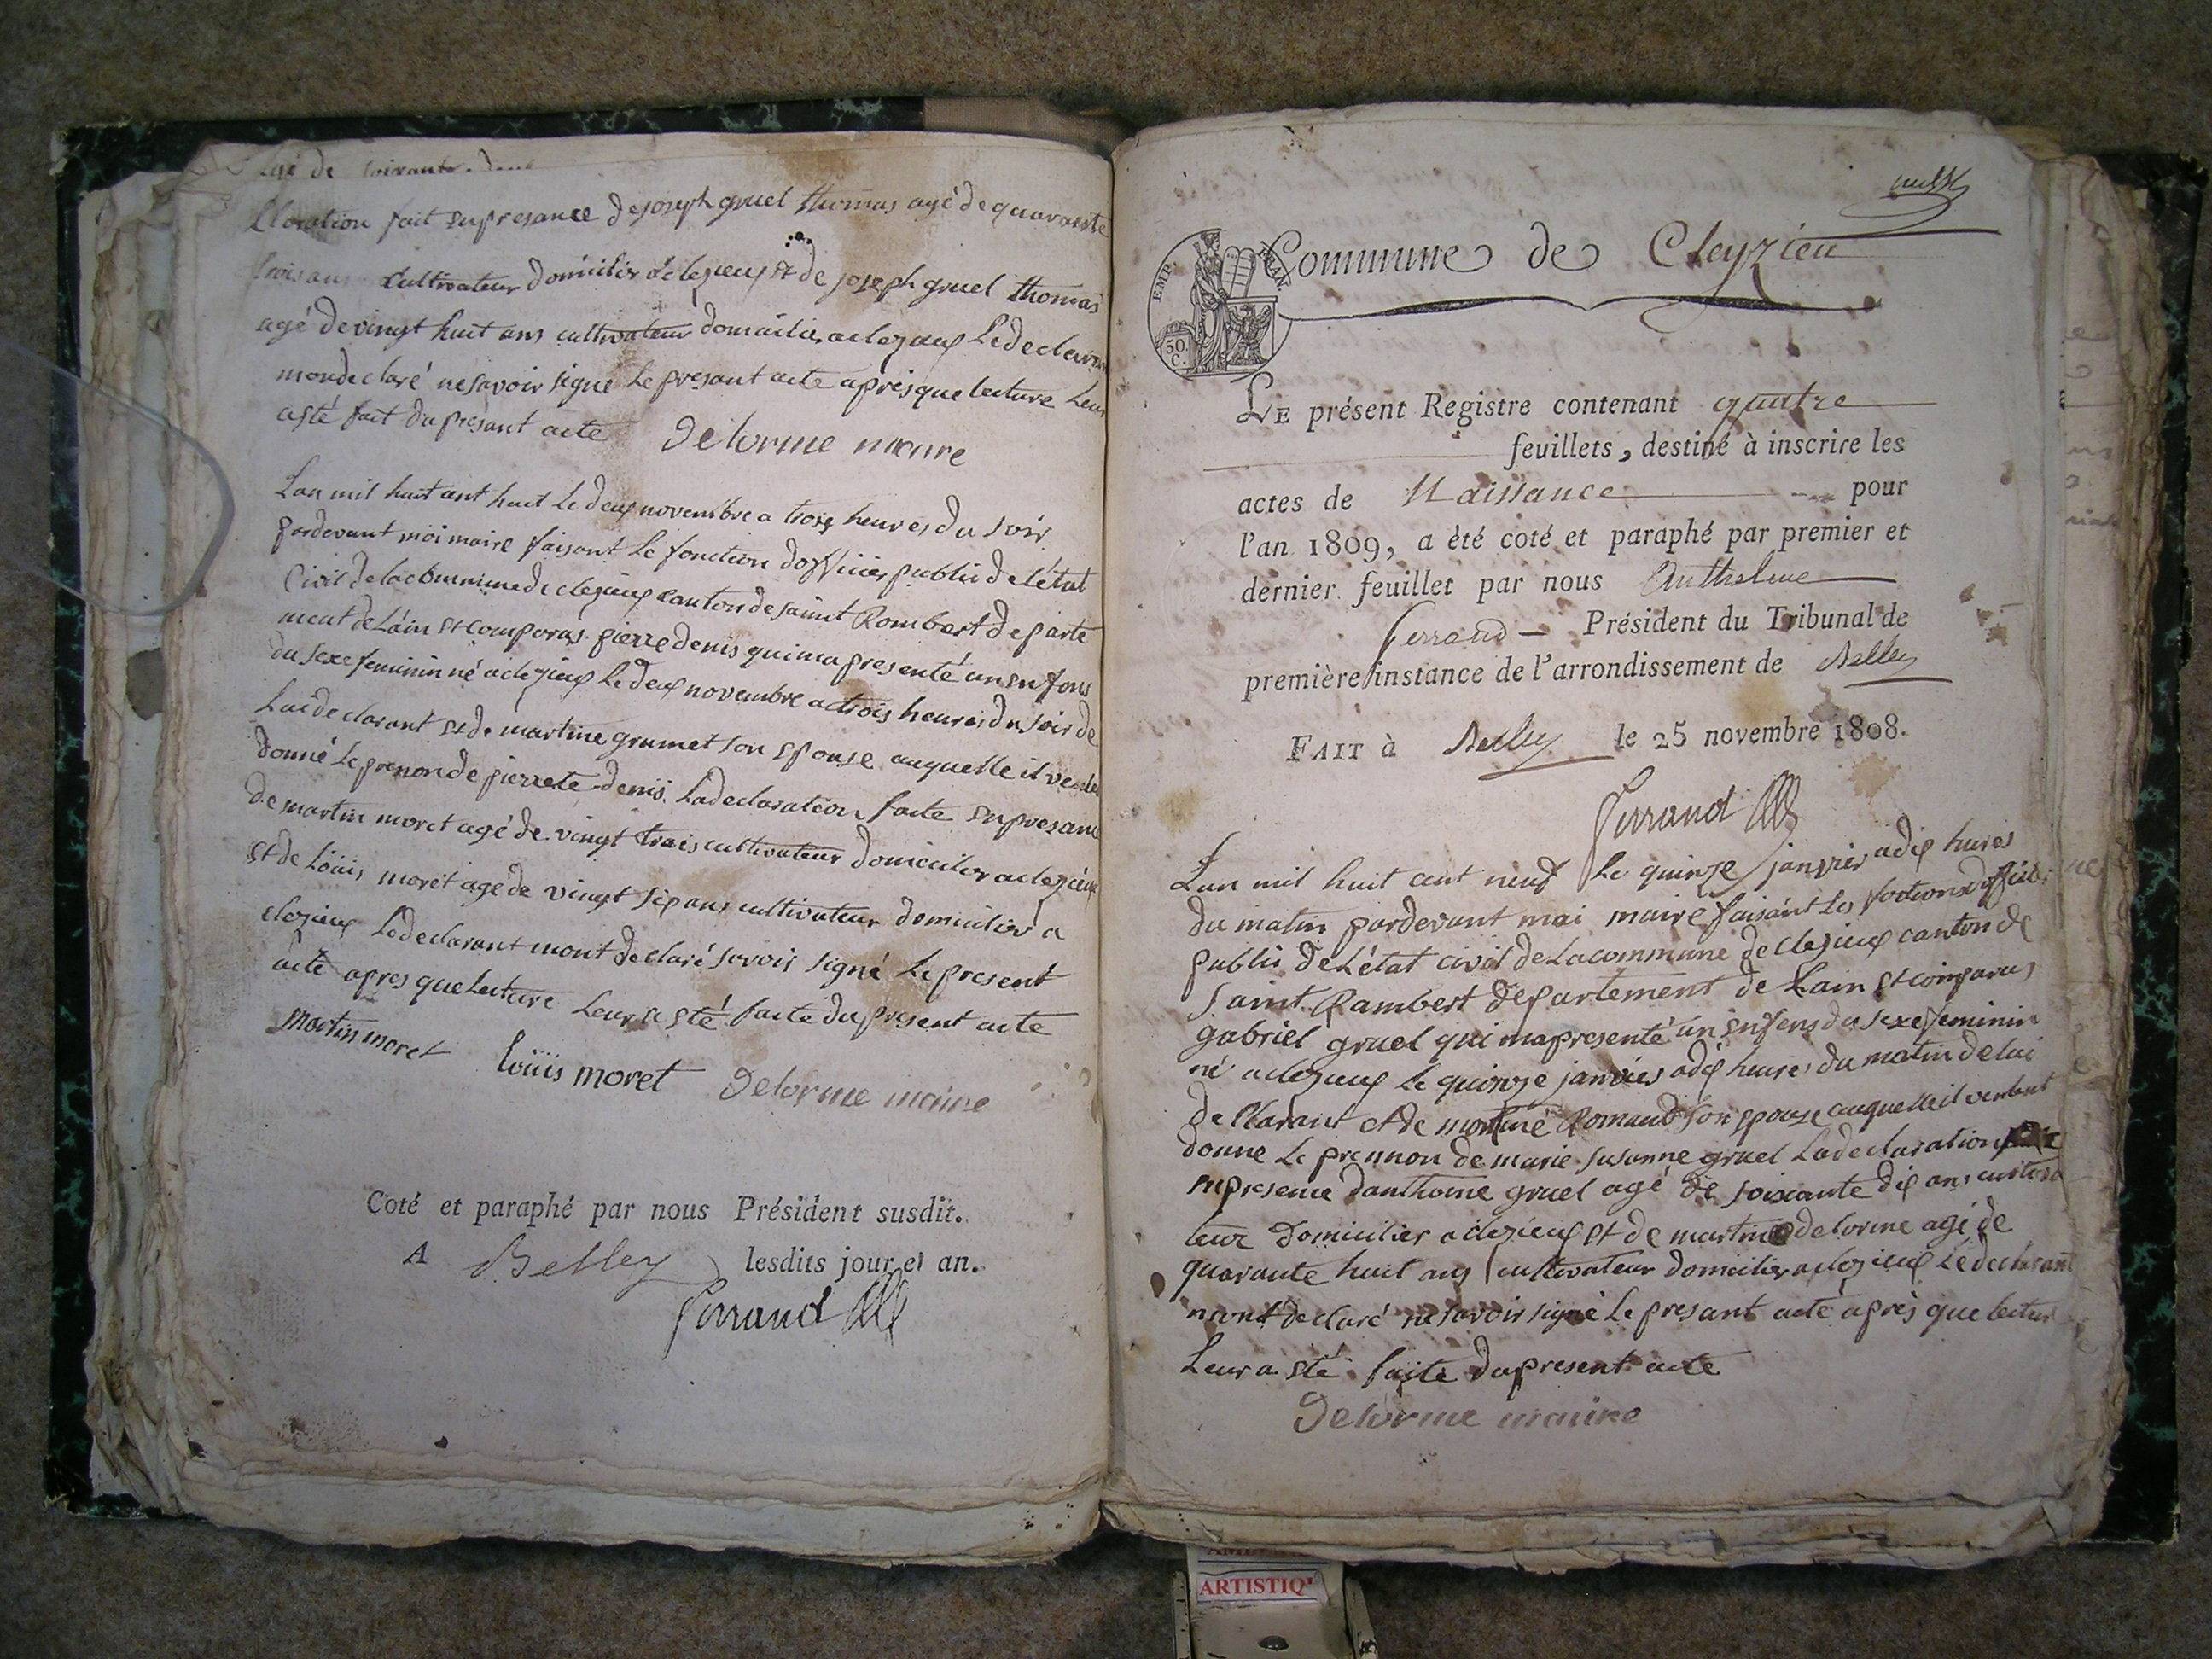 agé de soixante deux
Claration fait en presance de joseph gruel thomas agé de quarante
trois ans cultivateur domicilier a clezieux et de joseph gruel thomas
agé de vingt huit ans cultivateur domicilier a clezieux Le declarant
mon declaré ne savoir signe Le presant acte apris que lecture Leur
a esté fait du presant acte Delorme maire
Lan mil huit cent huit Le deux novembre a trois heures du soir
pardevant moi maire faisant le fonction dofficier public de létat
Civil de la commune de clezieux canton de saint Rambert departe
ment de Lain et comparus pierre denis qui ma presenté un enfans
du sexe feminin né a clezieux Le deux novembre a trois heures du soir de
Lui declarant et de martine grumet son epouse auquelle il veulent
donné Le prenon de pierrete denis La declaration faite en presance
de martin moret agé de vingt trois cultivateur domicilier a clezieux
et de Loüis moret age de vingt six ans cultivateur domicilier a
clezieux Le declarant mont declaré savoir signé Le present
acte apres que lecture Leur a esté faite du present acte
Martin moret loüis moret Delorme maire
Coté et paraphé par nous Président susdit.
A Belley lesdits jour et an.
Ferrand
Commune de Cleyzieu
EMP. FRAN.
50
C.
LE présent Registre contenant quatre
feuillets, destiné à inscrire les
actes de Naissance pour
l'an 1809, a été coté et paraphé par premier et
dernier feuillet par nous Anthelme
Ferrand Président du Tribunal de
première instance de l'arrondissement de Belley
FAIT à Belley le 25 novembre 1808.
Ferrand
Lan mil huit cent neuf Le quinze janvier a dix hures
du matin pardevant moi maire faisant Les foctions dofficier
public de Létat civil de La commune de clezieux canton de
saint Rambert departement de Lain et comparus
gabriel gruel qui ma presenté un enfens du sexe feminin
né a clezieux le quinze janvier a dix heures du matin de lui
de Clarant et de Romand son epouse auquelle il veulent
donne Le prennon de marie susanne gruel La declaration
en presence danthoine gruel agé de soixante dix ans cultiva
teur domicilier a clezieux et de martin delorme agé de
quarante huit ans cultivateur domicilier a clezieux Le declarant
mont declaré ne savoir signé Le presant acté après que lectur
Leur a esté faite du present acte
Delorme maire
ARTISTIQ